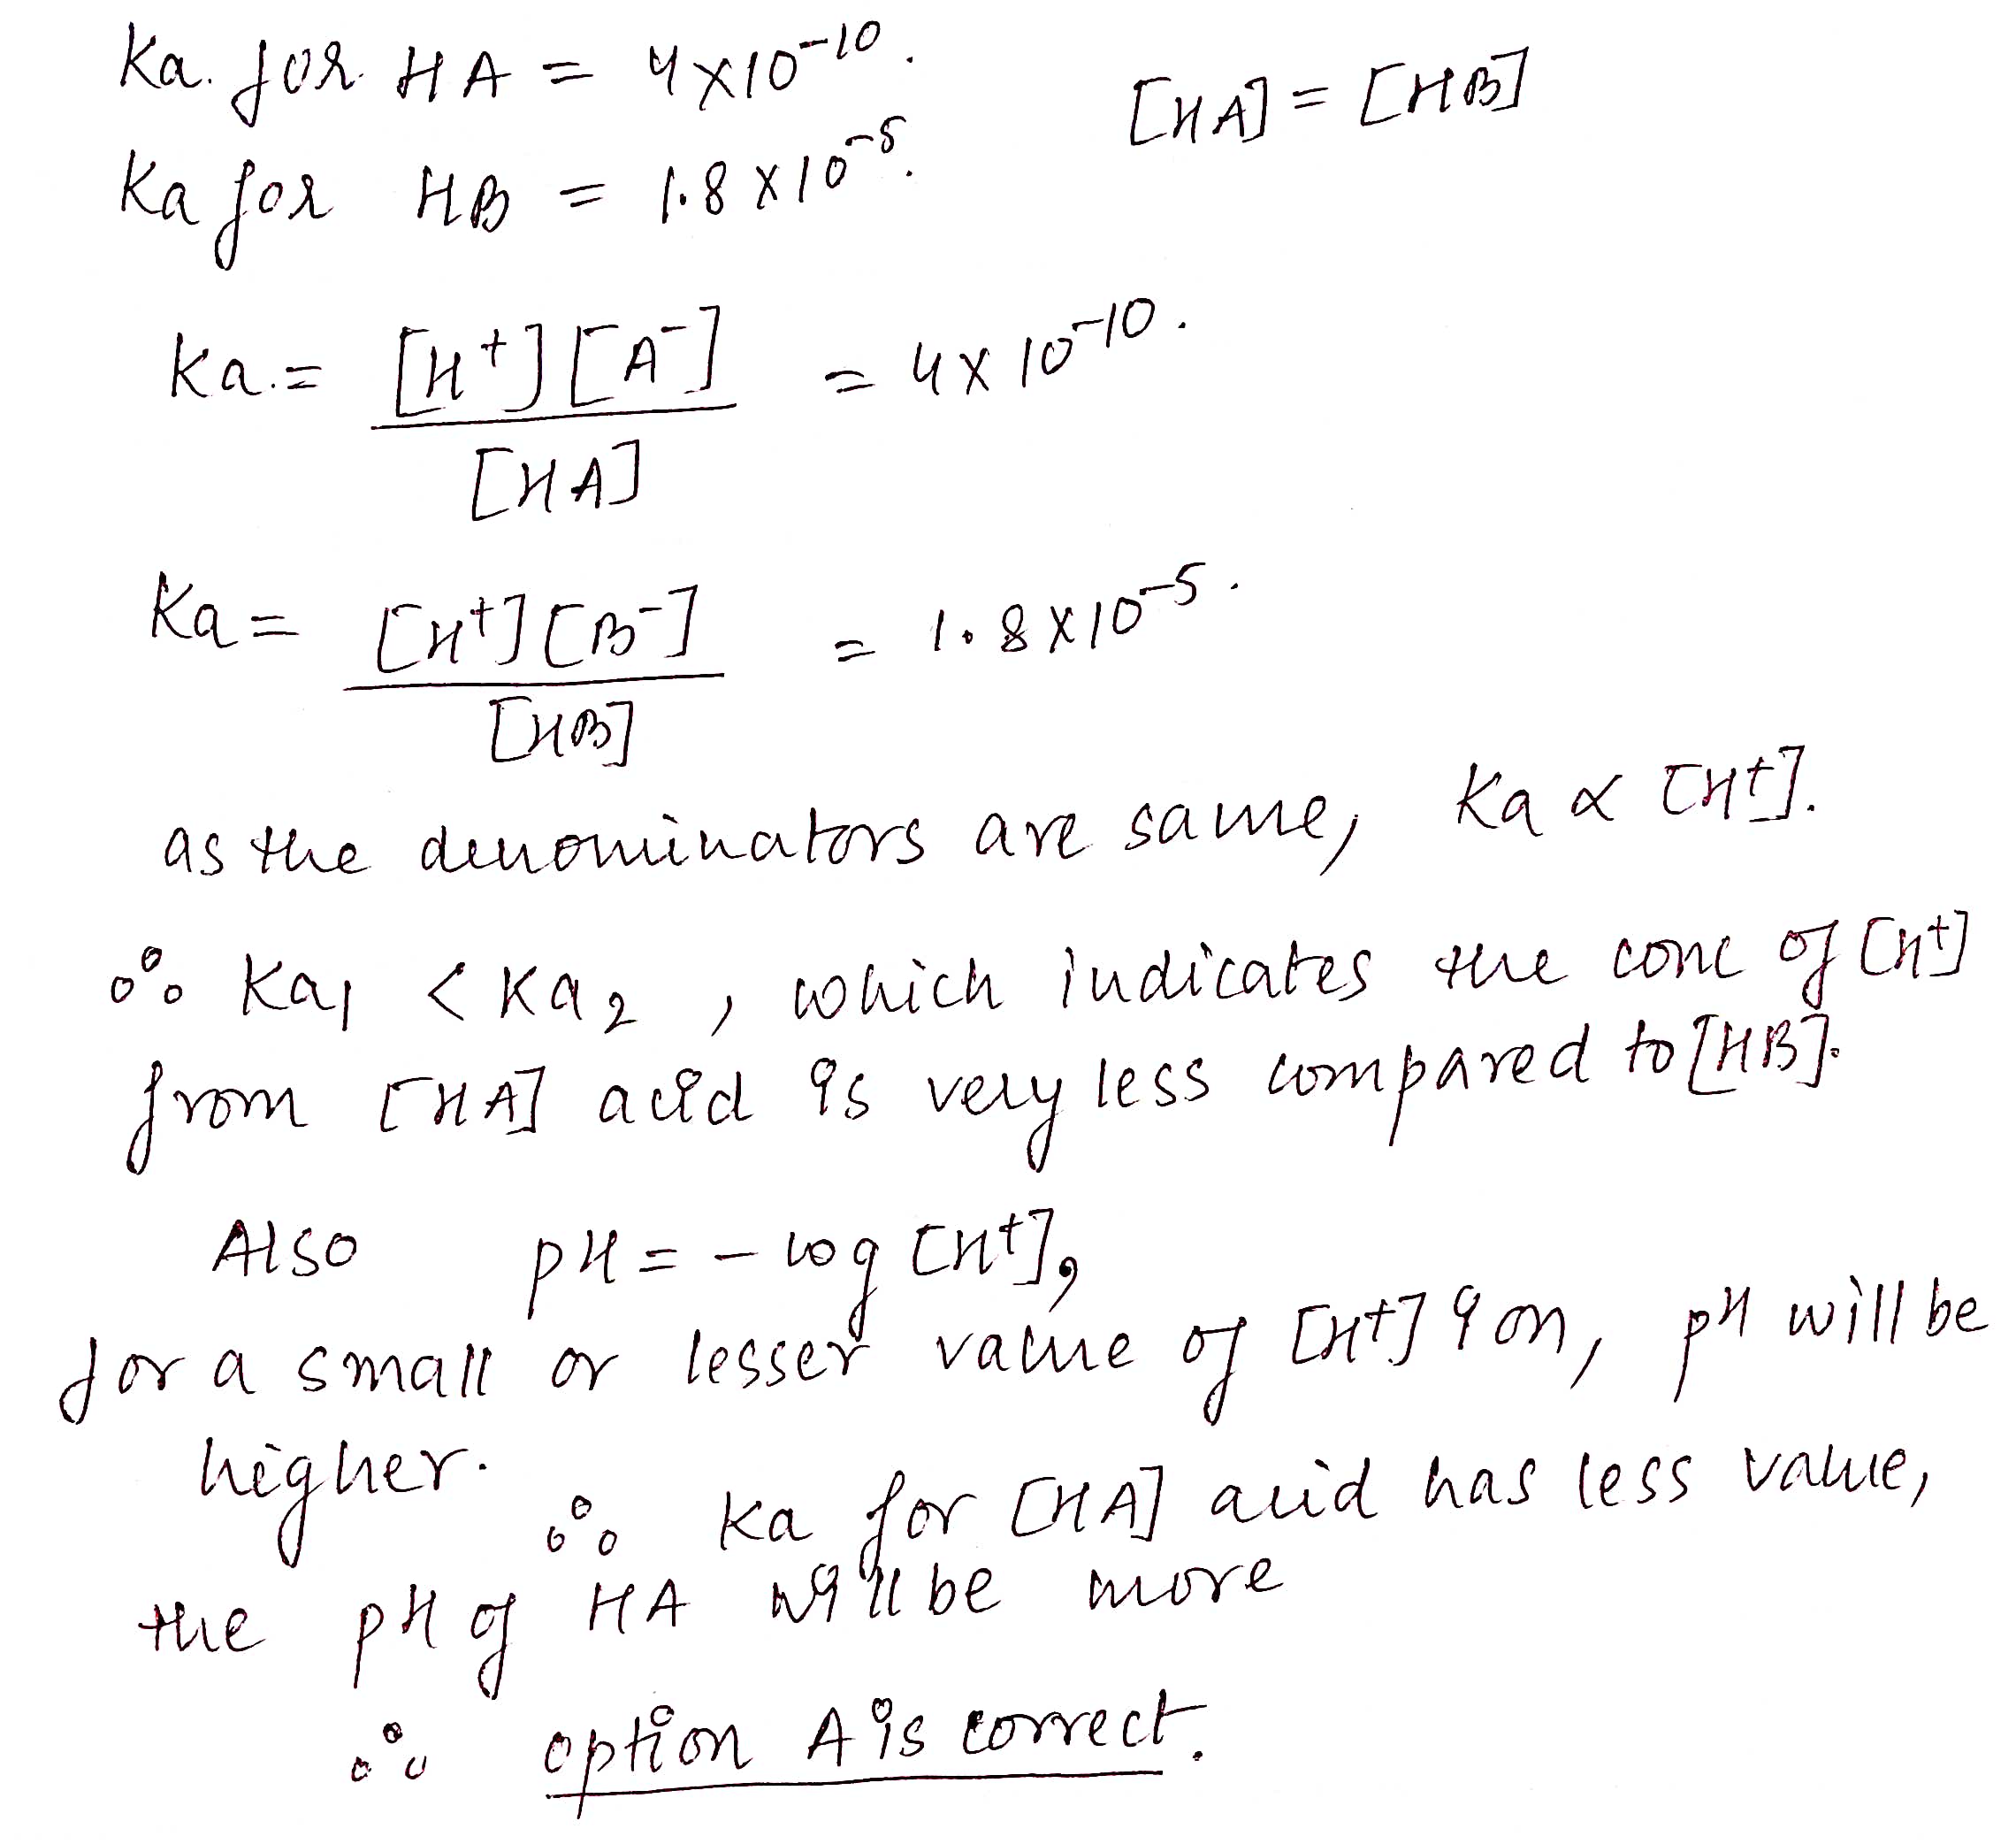 Ka. for HA = 4×10⁻¹⁰.
[HA] = [HB]
Ka for HB = 1.8×10⁻⁵.
Ka. = [H⁺][A⁻] = 4×10⁻¹⁰.
[HA]
Ka = [H⁺][B⁻] = 1.8×10⁻⁵.
[HB]
as the denominators are same, Ka α [H⁺].
∴ Ka₁ < Ka₂, which indicates the conc of [H⁺]
from [HA] acid is very less compared to [HB].
Also pH = -log [H⁺],
for a small or lesser value of [H⁺] ion, pH will be
higher.
∴ Ka for [HA] acid has less value,
the pH of HA will be more
∴ option A is correct.